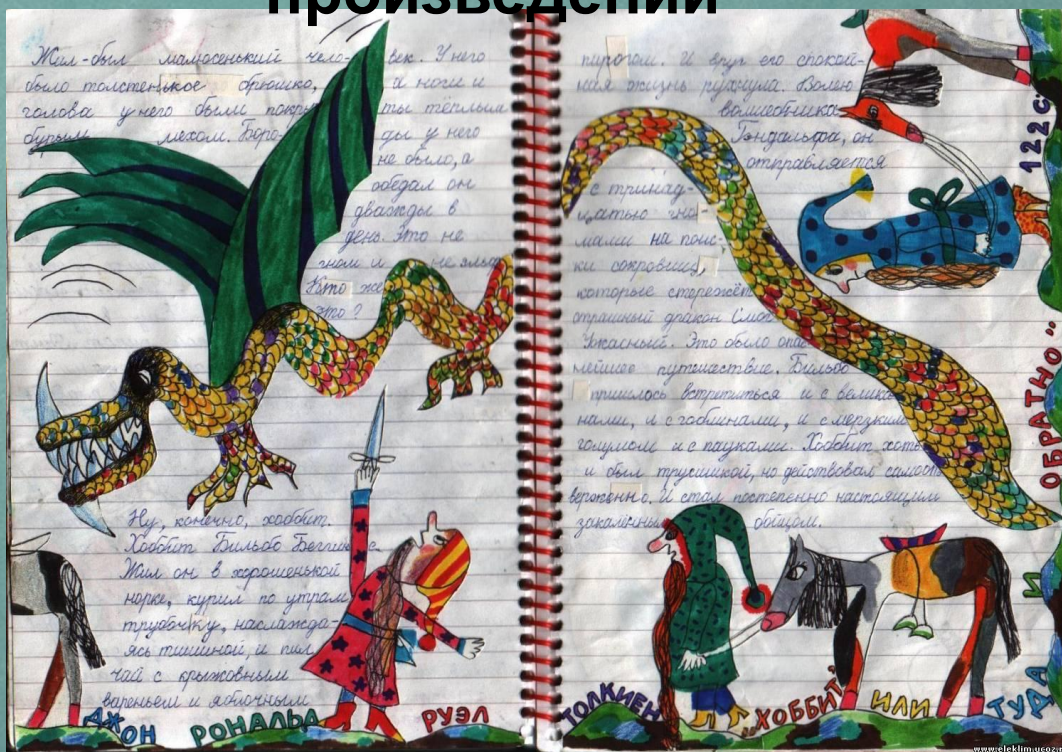 произведений
Жил-был малюсенький чело- век. У него
было толстенькое брюшко, а ноги и
голова у него были покры ты тёплым
бурым мехом. Боро- ды у него
не было, а
обедал он
дважды в
день. Это не
гном и не эльф
Кто же
это?
Ну, конечно, хоббит.
Хоббит Бильбо Беггинс
Жил он в хорошенькой
норке, курил по утрам
трубочку, наслажда-
ясь тишиной, и пил
чай с крыжовным
вареньем и яблочным
ДЖОН РОНАЛЬД РУЭЛ
пирогом. И вдруг его спокой-
ная жизнь рухнула. Волею
волшебника
Гэндальфа, он
отправляется
с тринад-
цатью гно-
мами на поис-
ки сокровищ,
которые стережёт
страшный дракон Смог
Ужасный. Это было опас
нейшее путешествие. Бильбо
пришлось встретиться и с велика
нами, и с гоблинами, и с мерзким
голумом и с пауками. Хоббит хоть
и был трусишкой, но действовал самоот
верженно. И стал постепенно настоящим
закалённым бойцом.
ТОЛКИЕН „ХОББИТ, ИЛИ ТУДА
И
ОБРАТНО"
122 с
www.eleklim.ucoz